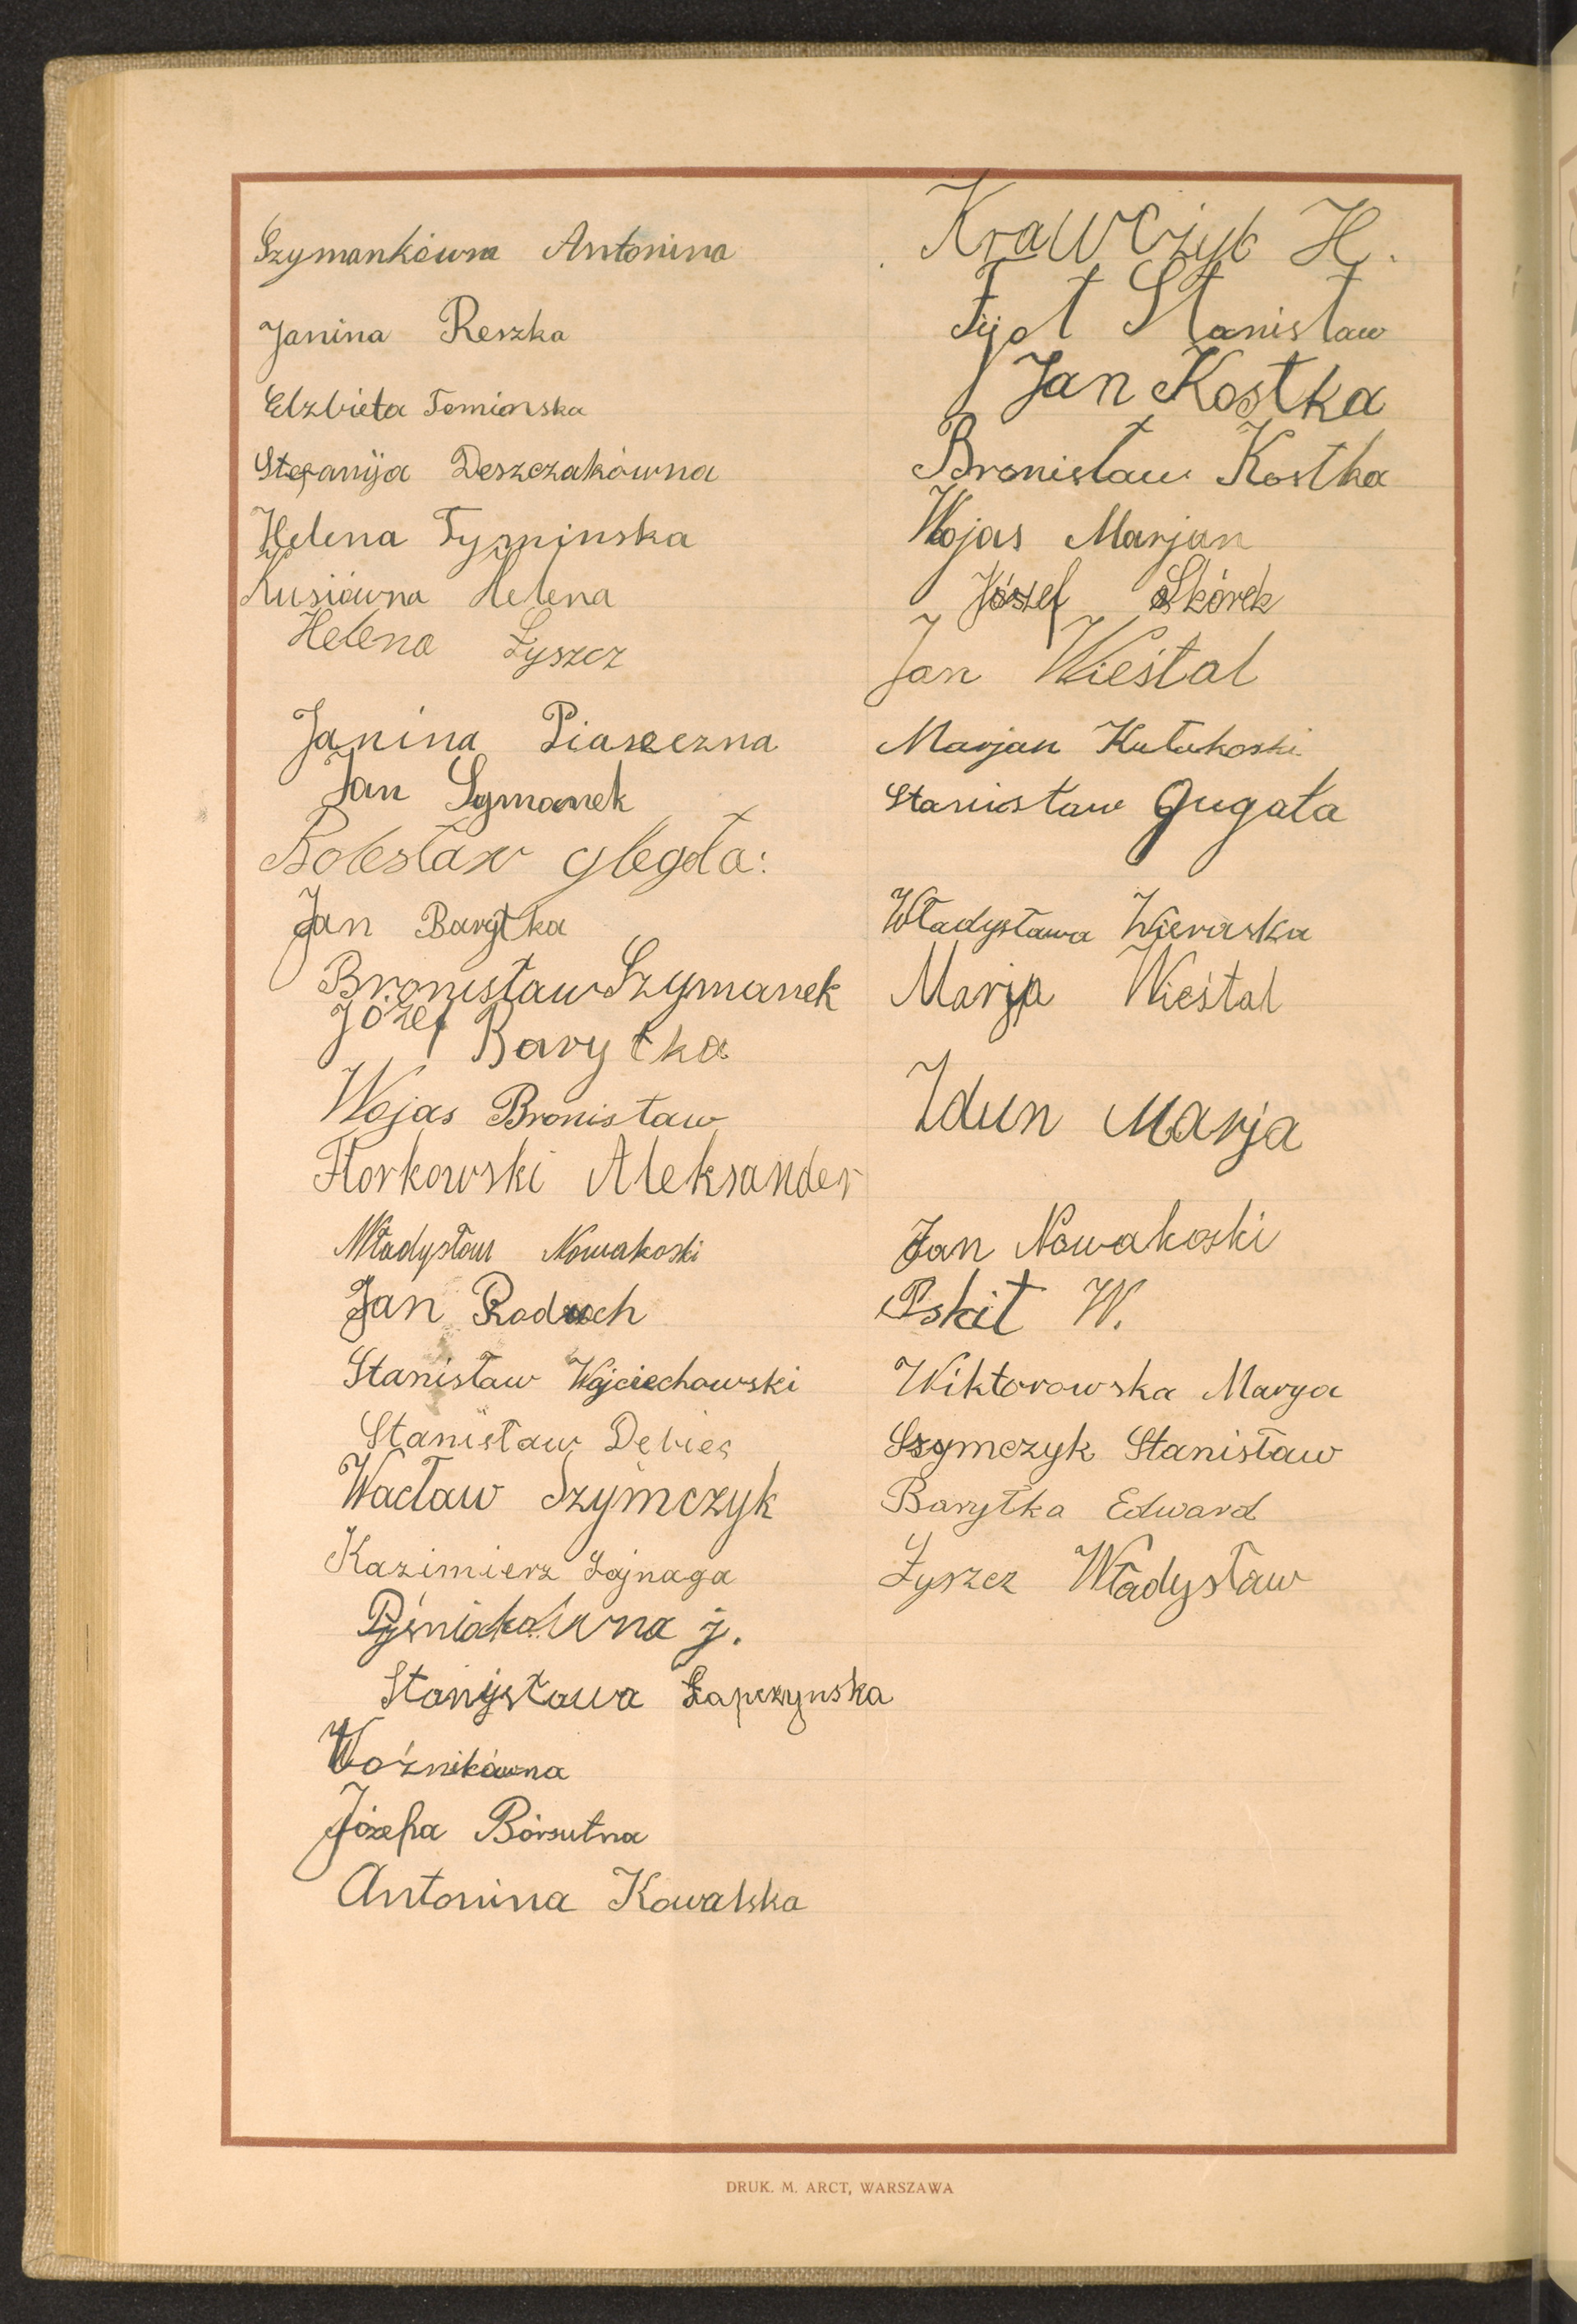 Szymankówna Antonina
Janina Reszka
Elzbieta Tomionska
Stefanija Deszczakówna
Helena Tyminska
Kusiówna Helena
Helena Łyszcz
Janina Piaseczna
Jan Symanek
Bolesław Glegoła:
Jan Baryłka
Bronisław Szymanek
Józef Baryłka
Wojas Bronisław
Florkowski Aleksander
Władysław Nowakoski
Jan Radzoch
Stanisław Wojciechowski
Stanisław Dębies
Wacław Szymczyk
Kazimierz Łajnaga
J.
Stanysława Łapczynska
Woźnikówna
Józefa Borsutna
Antonina Kowalska
Krawczyk H.
Fijoł Stanisław
Jan Kostka
Bronisław Kostka
Wojas Marjan
Józef Skórek
Jan Wieśtal
Marjan Kułakoski
Stanisław Gugała
Władysława
Marja Wieśtal
Zdun Marja
Jan Nowakoski
Pskit W.
Wiktorowska Marya
Szymczyk Stanisław
Baryłka Edward
Łyszcz Władysław
DRUK. M. ARCT, WARSZAWA